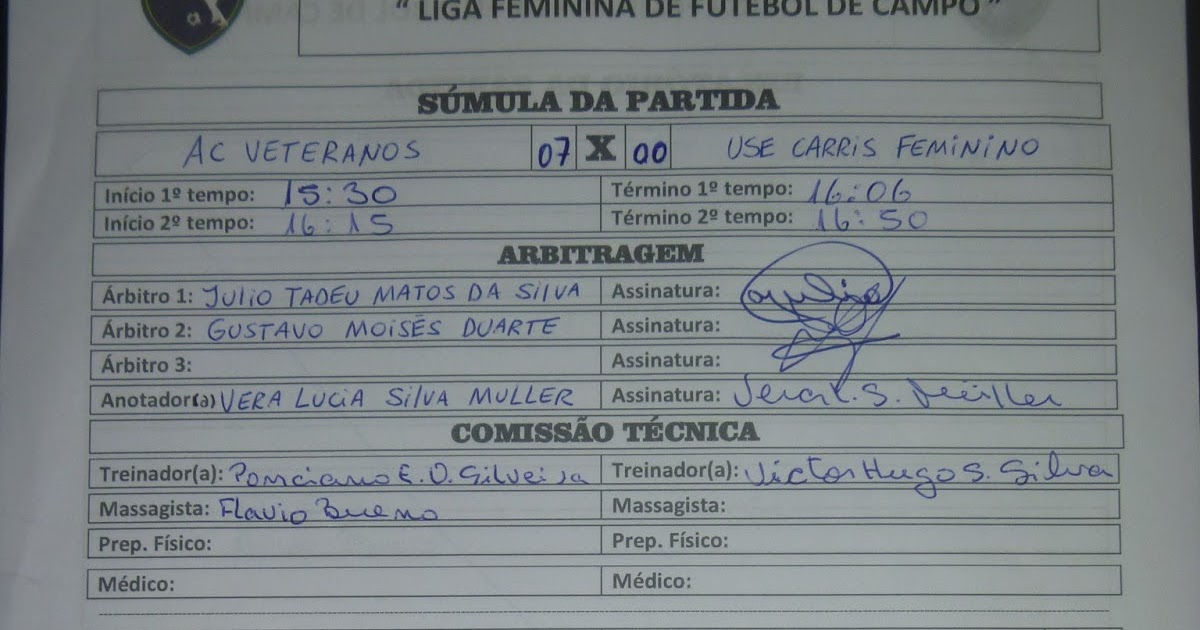 " LIGA FEMININA DE FUTEBOL DE CAMPO "
SÚMULA DA PARTIDA
AC VETERANOS 07 X 00 USE CARRIS FEMININO
Início 1º tempo: 15:30 Término 1º tempo: 16:06
Início 2º tempo: 16:15 Término 2º tempo: 16:50
ARBITRAGEM
Árbitro 1: JULIO TADEU MATOS DA SILVA Assinatura:
Árbitro 2: GUSTAVO MOISÉS DUARTE Assinatura:
Árbitro 3: Assinatura:
Anotador(a) VERA LUCIA SILVA MULLER Assinatura: Vera L. S. Müller
COMISSÃO TÉCNICA
Treinador(a): Ponciano E. O. Silveira Treinador(a): Victor Hugo S. Silva
Massagista: Flavio Bueno Massagista:
Prep. Físico: Prep. Físico:
Médico: Médico: